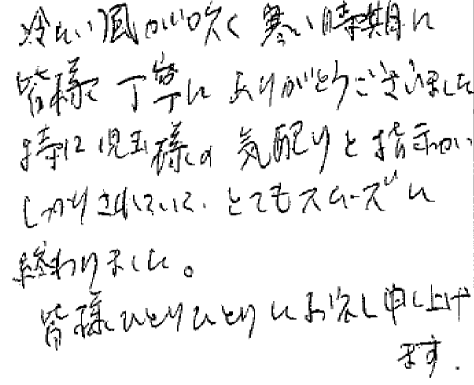 冷たい風が吹く寒い時期に
皆様丁寧にありがとうございました
特に児玉様の気配りと指示がい
しっかりされていて、とてもスムーズに
終わりました。
皆様ひとりひとりにお礼申し上げ
ます.